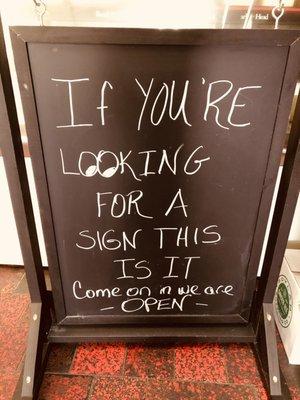 If YOU'RE
LOOKING
FOR A
SIGN THIS
IS IT
Come on in we are
- OPEN -